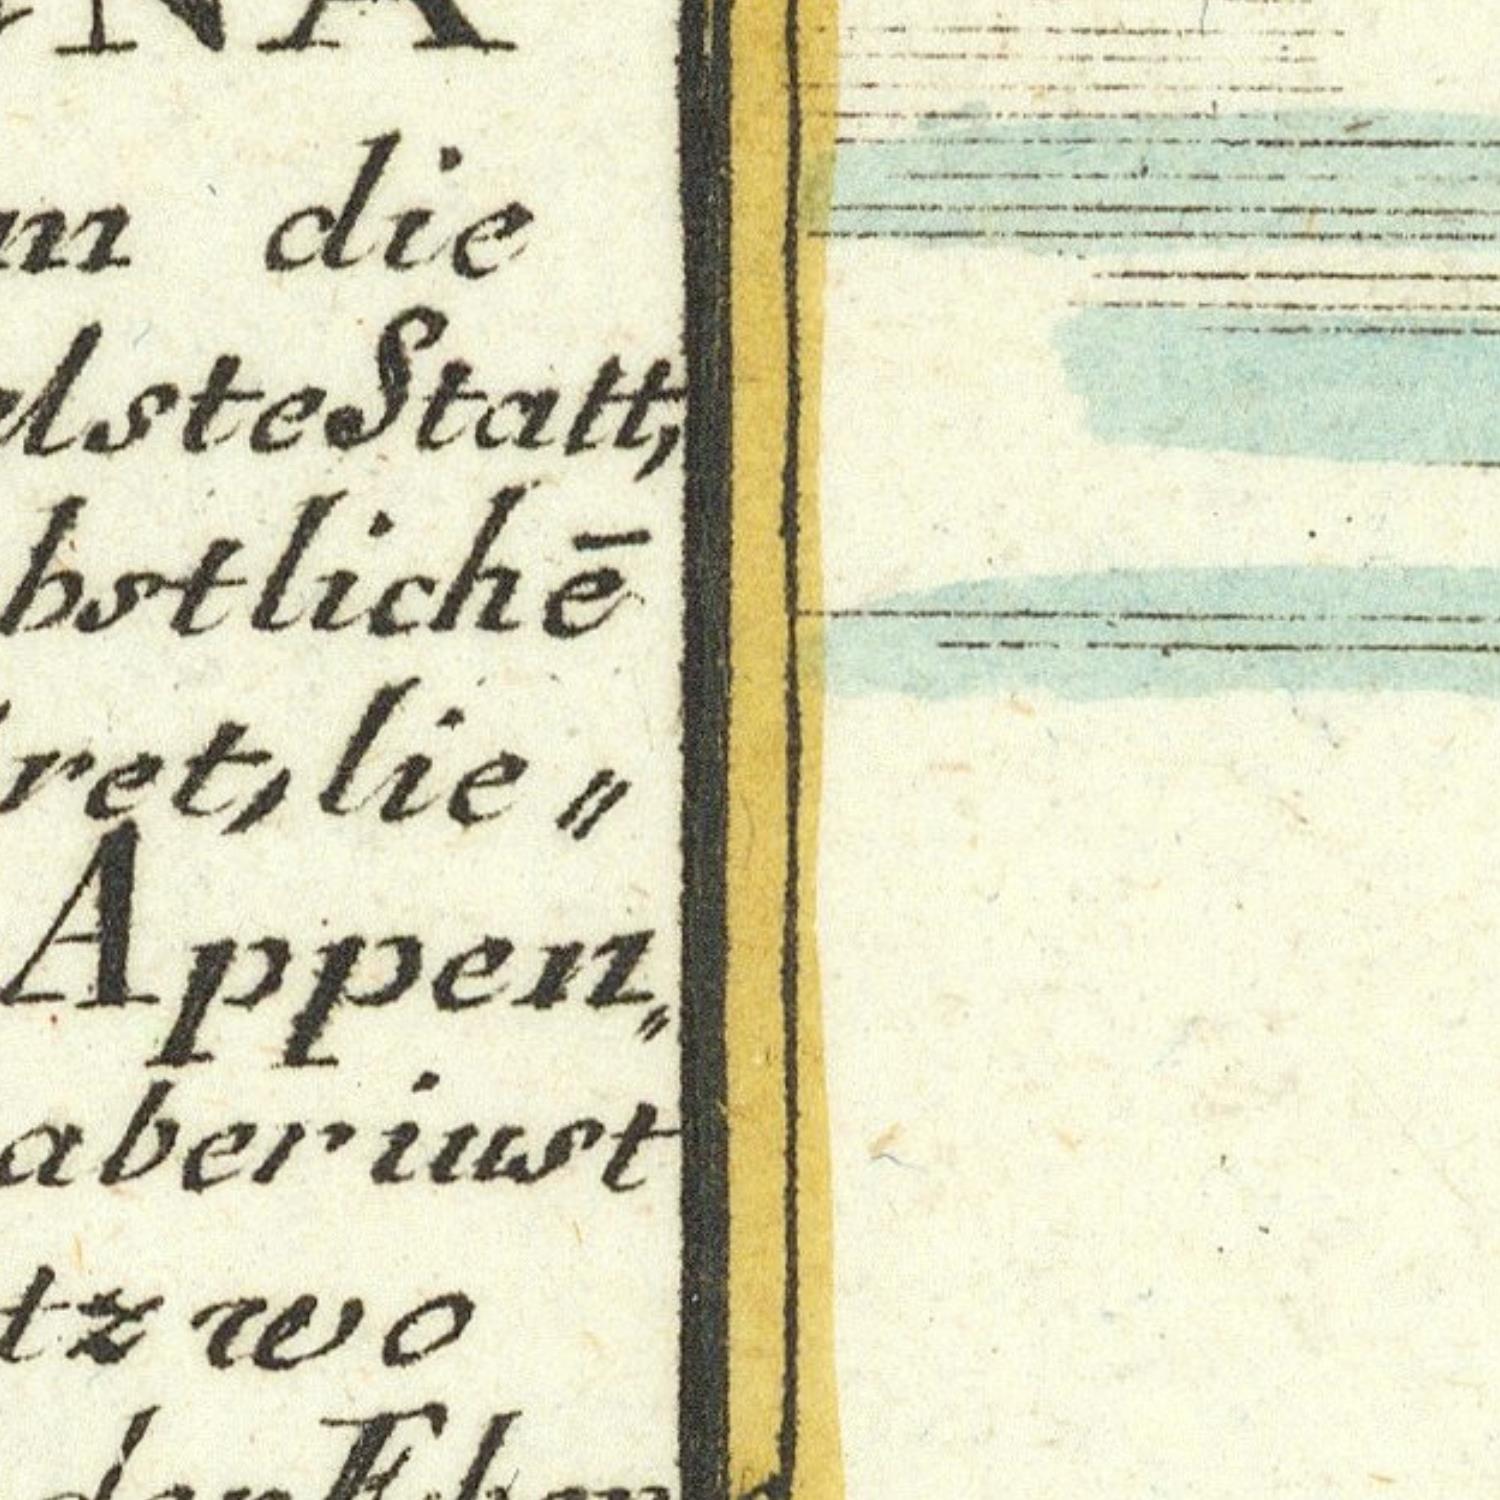 NA
m die
elste Statt,
bstlichē
ret, lie〃
Appen〃
aber iust
tz wo
den Eben